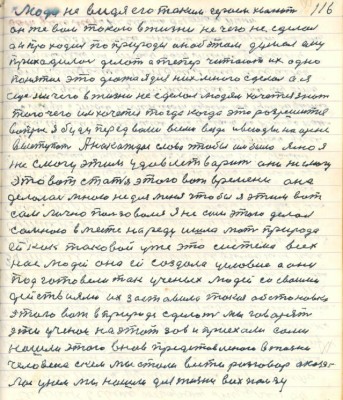 116
Люди не видя его таким сделали
он же вам такого в жизни не чего не сделал
он проходил по природи он обэтом думал ему
приходилос делат а теперь читают их одно
понятия это дело я для них много сделал а я
еще ни чего в жизни не сделал людям хочется знат
того чего им хочется тогда когда это разрешится
вопрос я буду перед вами всеми вами и выходит на арене
выступат Я на каждам слове чтобы им было ясно я
не смогу этим удовлетварит они не могу
Это вот стат этого вот времени она
делалас много не для меня чтобы я этим вот
сам лично ползовался Я не сам этого делал
са мною в месте на ряду ишла мат природа
ей как таковой уже это система всех
нас людей она ей создала условие а они
подготовели так ученых людей со своими
действиями их заставило такая обстановка
этого вот в природе сделат мы говарят
эти ученои на этот зов и приехали сами
нашли этого внов представленого в жизни
человека с ним мы стали вити разговор оказа-
лос у нем мы нашли для жизни всих ползу